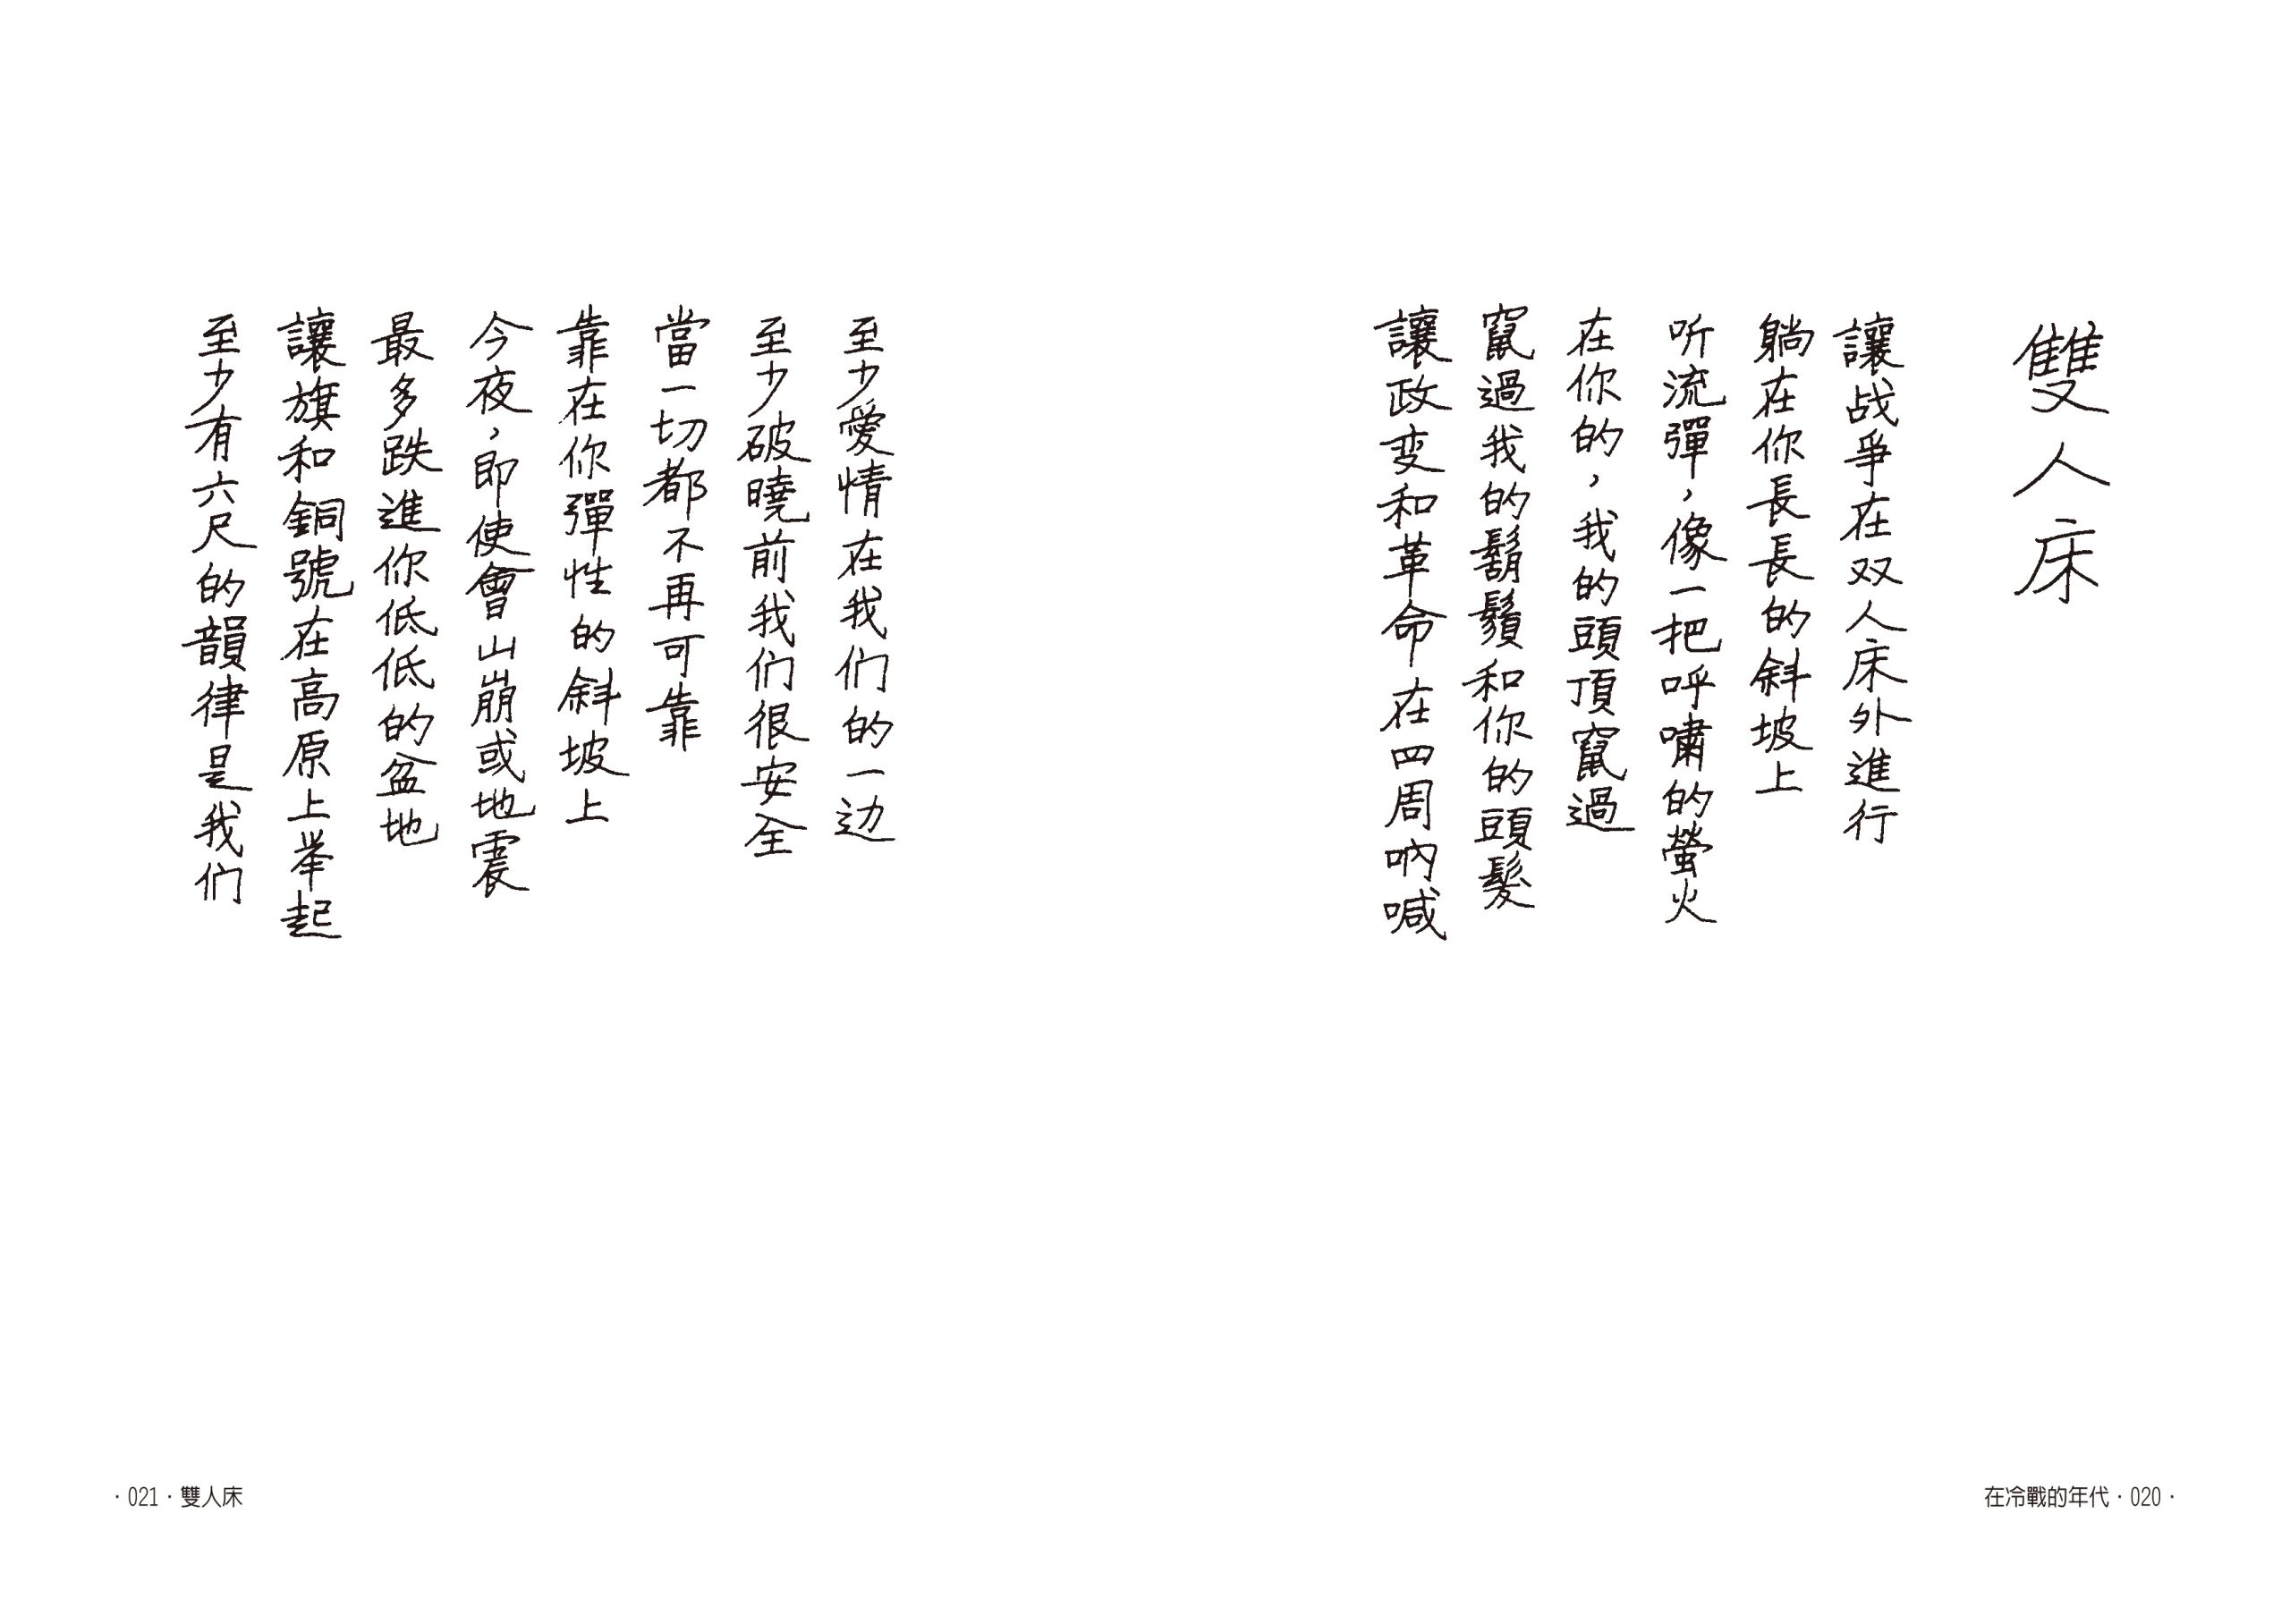 雙人床
讓战爭在双人床外進行
躺在你長長的斜坡上
听流彈，像一把呼嘯的螢火
在你的，我的頭頂竄過
竄過我的鬍鬚和你的頭髮
讓政变和革命在四周吶喊
至少愛情在我们的一边
至少破曉前我们很安全
當一切都不再可靠
靠在你彈性的斜坡上
今夜，即使會山崩或地震
最多跌進你低低的盆地
讓旗和銅號在高原上举起
至少有六尺的韻律是我们
在冷戰的年代·020·
·021·雙人床